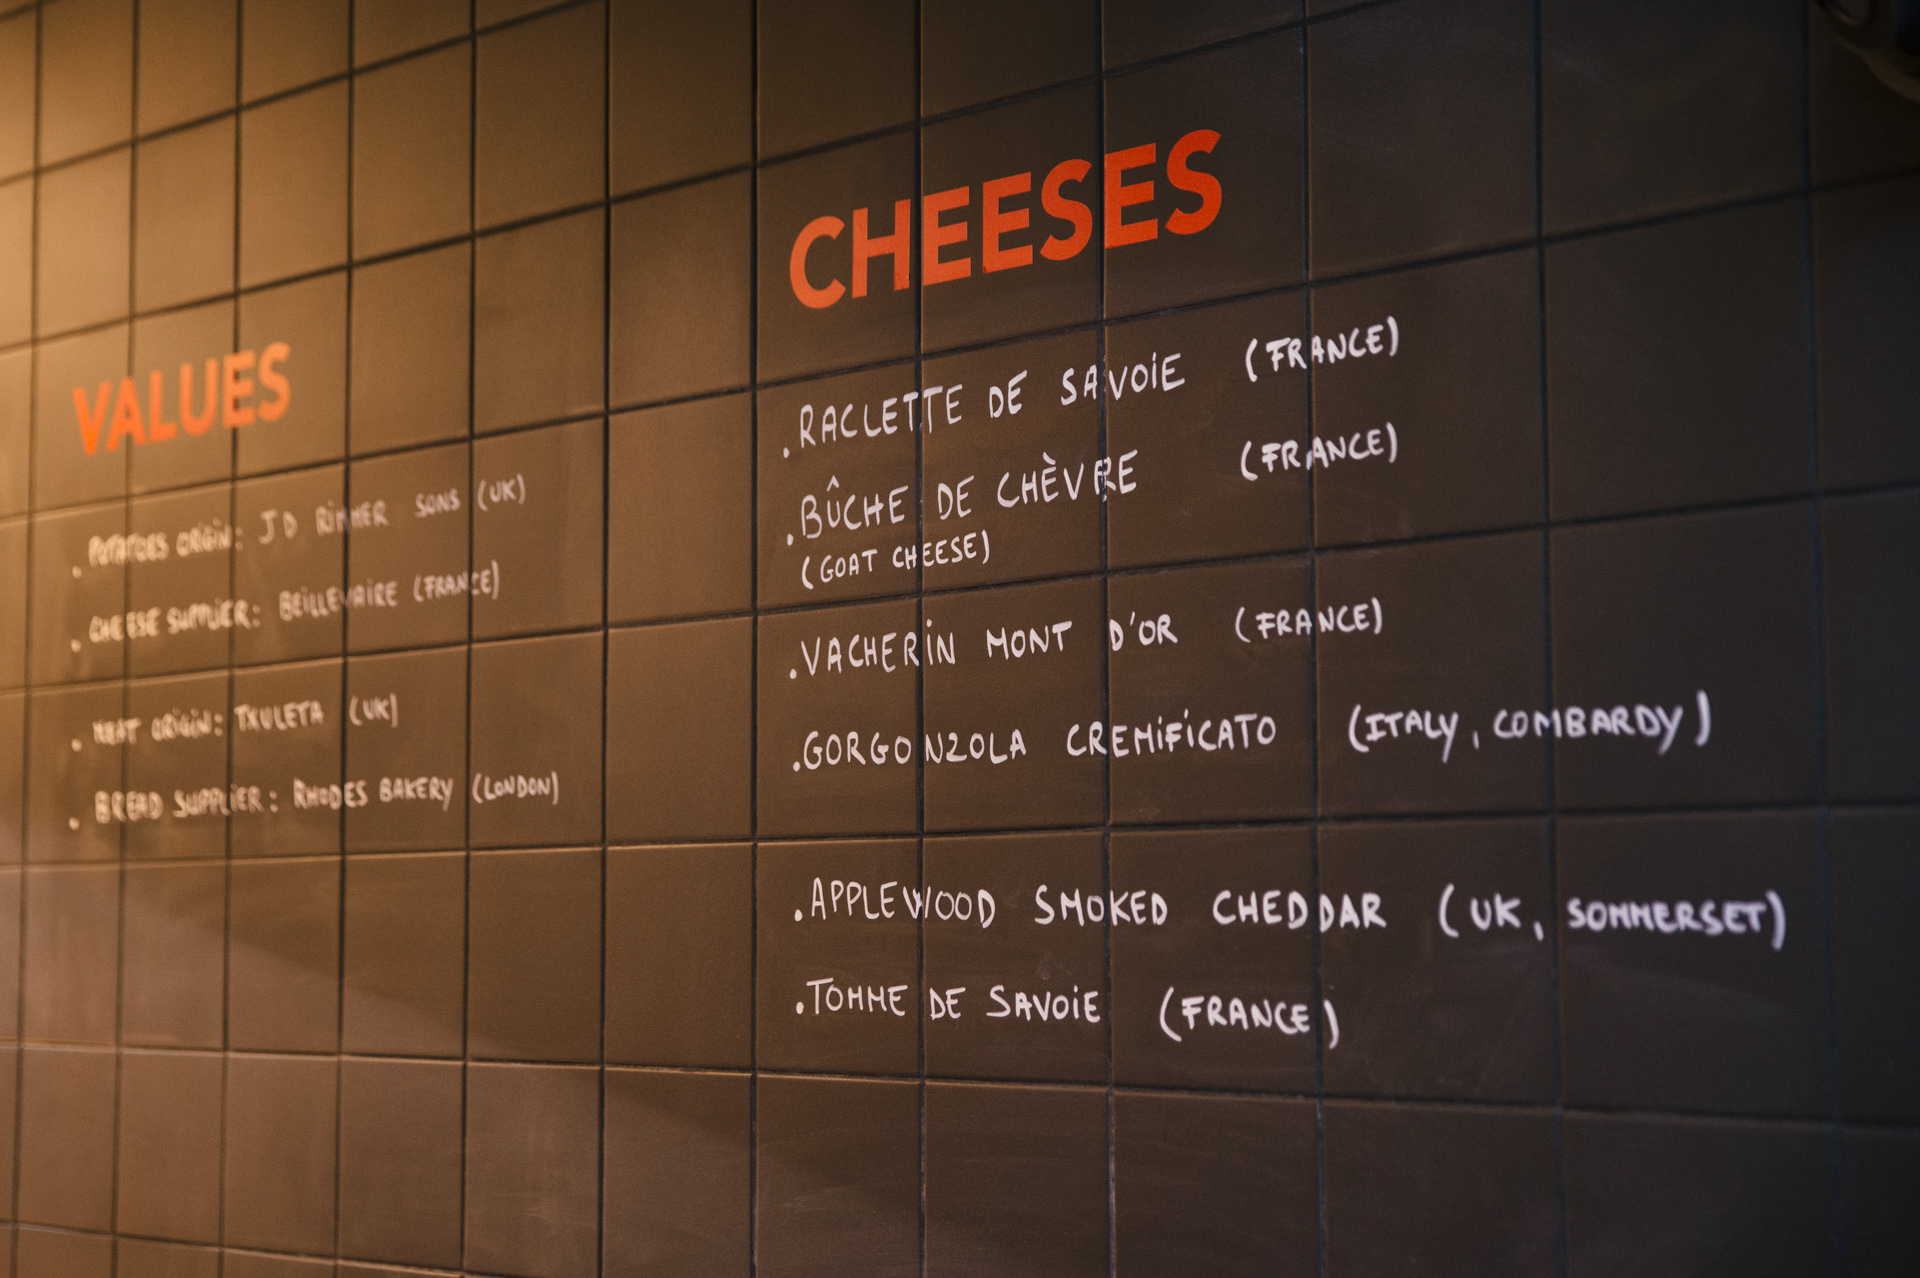 VALUES
. POTATOES ORIGIN: J D RIMMER SONS (UK)
. CHEESE SUPPLIER: BEILLEVAIRE (FRANCE)
. MEAT ORIGIN: TXULETA (UK)
. BREAD SUPPLIER: RHODES BAKERY (LONDON)
CHEESES
. RACLETTE DE SAVOIE (FRANCE)
. BÛCHE DE CHÈVRE (FRANCE)
(GOAT CHEESE)
. VACHERIN MONT D'OR (FRANCE)
. GORGONZOLA CREMIFICATO (ITALY, COMBARDY)
. APPLEWOOD SMOKED CHEDDAR (UK, SOMMERSET)
. TOMME DE SAVOIE (FRANCE)